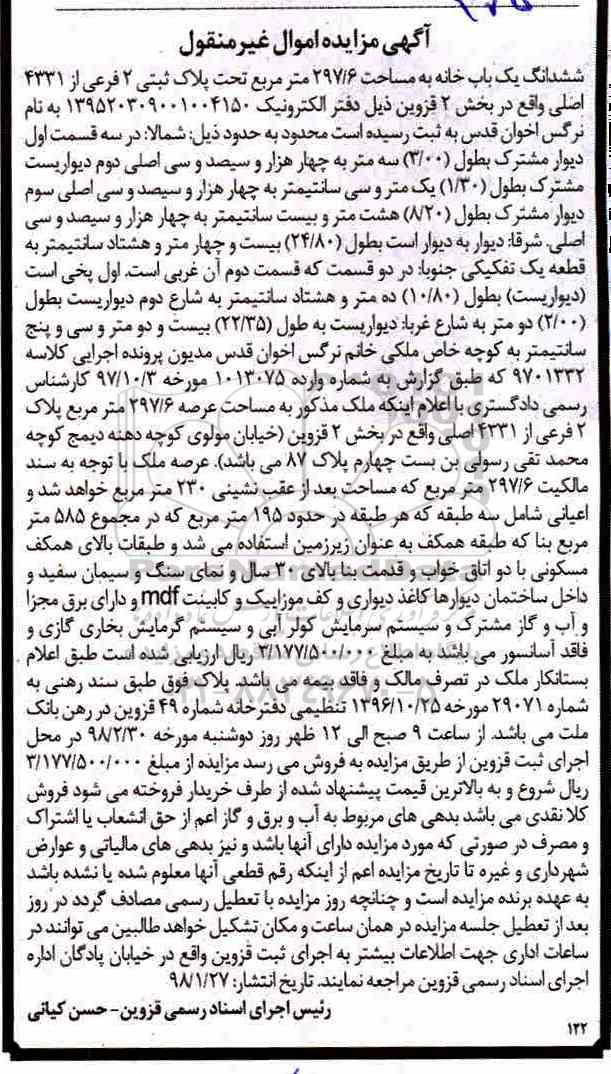 آگهی مزایده اموال غیر منقول
ششدانگ یک باب خانه به مساحت ۲۹۷/۶ متر مربع تحت پلاک ثبتی ۲ فرعی از ۴۳۳۱
اصلی واقع در بخش ۲ قزوین ذیل دفتر الکترونیک ۱۳۹۵۲۰۳۰۹۰۰۱۰۰۴۱۵۰ به نام
نرگس اخوان قدس به ثبت رسیده است محدود به حدود ذیل: شمالا: در سه قسمت اول
دیوار مشترک بطول (۳/۰۰) سه متر به چهار هزار و سیصد و سی اصلی دوم دیواریست
مشترک بطول (۱/۳۰) یک متر و سی سانتیمتر به چهار هزار و سیصد و سی اصلی سوم
دیوار مشترک بطول (۸/۲۰) هشت متر و بیست سانتیمتر به چهار هزار و سیصد و سی
اصلی. شرقا: دیوار به دیوار است بطول (۲۴/۸۰) بیست و چهار متر و هشتاد سانتیمتر به
قطعه یک تفکیکی جنوبا: در دو قسمت که قسمت دوم آن غربی است. اول پخی است
(دیواریست) بطول (۱۰/۸۰) ده متر و هشتاد سانتیمتر به شارع دوم دیواریست بطول
(۲/۰۰) دو متر به شارع غربا: دیواریست به طول (۲۲/۳۵) بیست و دو متر و سی و پنج
سانتیمتر به کوچه خاص ملکی خانم نرگس اخوان قدس مدیون پرونده اجرایی کلاسه
۹۷۰۱۳۳۲ که طبق گزارش به شماره وارده ۱۰۱۳۰۷۵ مورخه ۹۷/۱۰/۳ کارشناس
رسمی دادگستری با اعلام اینکه ملک مذکور به مساحت عرصه ۲۹۷/۶ متر مربع پلاک
۲ فرعی از ۴۳۳۱ اصلی واقع در بخش ۲ قزوین (خیابان مولوی کوچه دهنه دیمج کوچه
محمد تقی رسولی بن بست چهارم پلاک ۸۷ می باشد). عرصه ملک با توجه به سند
مالکیت ۲۹۷/۶ متر مربع که مساحت بعد از عقب نشینی ۲۳۰ متر مربع خواهد شد و
اعیانی شامل سه طبقه که هر طبقه در حدود ۱۹۵ متر مربع که در مجموع ۵۸۵ متر
مربع بنا که طبقه همکف به عنوان زیرزمین استفاده می شد و طبقات بالای همکف
مسکونی با دو اتاق خواب و قدمت بنا بالای ۳۰ سال و نمای سنگ و سیمان سفید و
داخل ساختمان دیوارها کاغذ دیواری و کف موزاییک و کابینت mdf و دارای برق مجزا
و آب و گاز مشترک و سیستم سرمایش کولر آبی و سیستم گرمایش بخاری گازی و
فاقد آسانسور می باشد به مبلغ ۳/۱۷۷/۵۰۰/۰۰۰ ریال ارزیابی شده است طبق اعلام
بستانکار ملک در تصرف مالک و فاقد بیمه می باشد. پلاک فوق طبق سند رهنی به
شماره ۲۹۰۷۱ مورخه ۱۳۹۶/۱۰/۲۵ تنظیمی دفترخانه شماره ۴۹ قزوین در رهن بانک
ملت می باشد. از ساعت ۹ صبح الی ۱۲ ظهر روز دوشنبه مورخه ۹۸/۲/۳۰ در محل
اجرای ثبت قزوین از طریق مزایده به فروش می رسد مزایده از مبلغ ۳/۱۷۷/۵۰۰/۰۰۰
ریال شروع و به بالاترین قیمت پیشنهاد شده از طرف خریدار فروخته می شود فروش
کلا نقدی می باشد بدهی های مربوط به آب و برق و گاز اعم از حق انشعاب یا اشتراک
و مصرف در صورتی که مورد مزایده دارای آنها باشد و نیز بدهی های مالیاتی و عوارض
شهرداری و غیره تا تاریخ مزایده اعم از اینکه رقم قطعی آنها معلوم شده یا نشده باشد
به عهده برنده مزایده است و چنانچه روز مزایده با تعطیل رسمی مصادف گردد در روز
بعد از تعطیل جلسه مزایده در همان ساعت و مکان تشکیل خواهد طالبین می توانند در
ساعات اداری جهت اطلاعات بیشتر به اجرای ثبت قزوین واقع در خیابان پادگان اداره
اجرای اسناد رسمی قزوین مراجعه نمایند. تاریخ انتشار: ۹۸/۱/۲۷
رئیس اجرای اسناد رسمی قزوین- حسن کیانی
۱۲۲